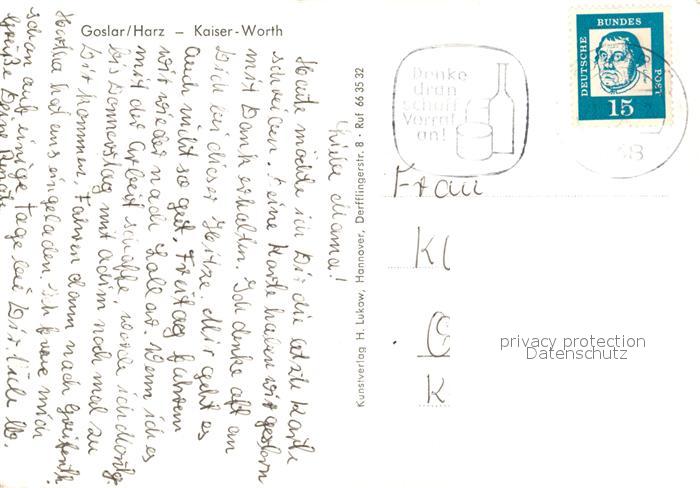 Goslar/Harz – Kaiser-Worth
Liebe Mama!
Heute möchte ich Dir die letzte Karte
schreiben. Deine Karte haben wir gestern
mit Dank erhalten. Ich denke oft an
Dich bei dieser Hitze. Mir geht es
auch nicht so gut. Freitag fahren
wir wieder nach Wenn ich es
mit der Arbeit schaffe, werde ich
bis Donnerstag mit noch mal zu
Dir kommen, fahren dann nach
hat uns eingeladen. Ich freue mich
schon auf einige Tage bei Dir. Viele lb.
Grüße Deine Renate
Kunstverlag H. Lukow, Hannover, Derfflingerstr. 8 · Ruf 66 35 32
Denke
dran
schaff
Vorrat
an!
DEUTSCHE BUNDES POST
15
Frau
K
K
privacy protection
Datenschutz